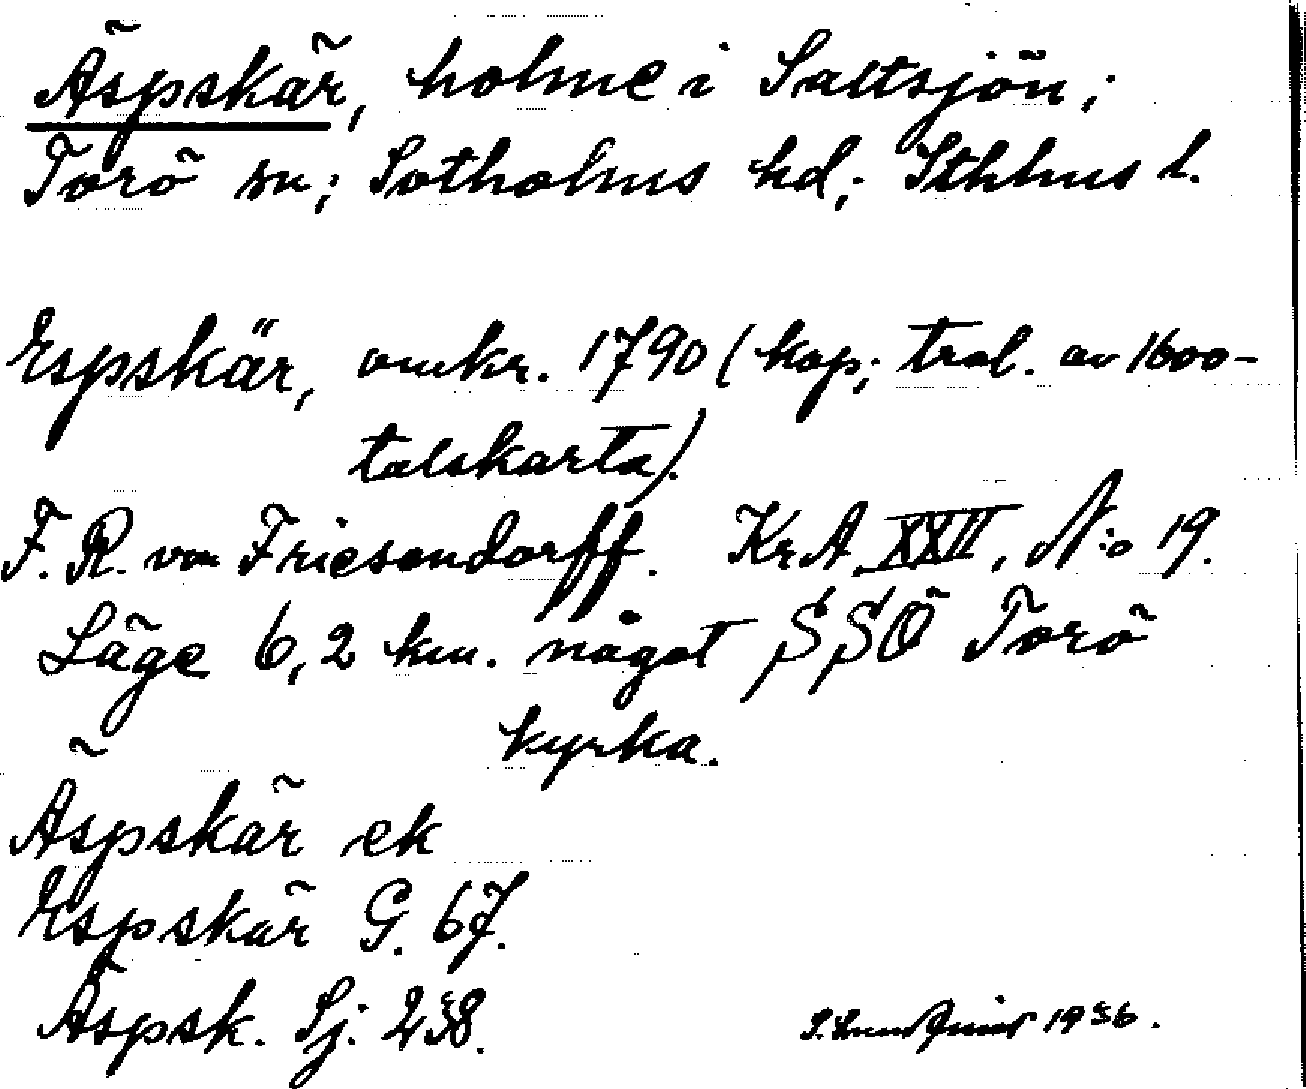 Äspskär, holme i Saltsjön;
Torö sn; Sotholms hd; Sthlms l.
Espskär, omkr. 1790 (kop; trol. av 1600-
talskarta).
F. R. von Friesendorff. KrA XXII, N:o 19.
Läge 6,2 km. något SSÖ Torö
kyrka.
Äspskär ek
Espskär G. 67.
Äspsk. Sj. 258.
1936.